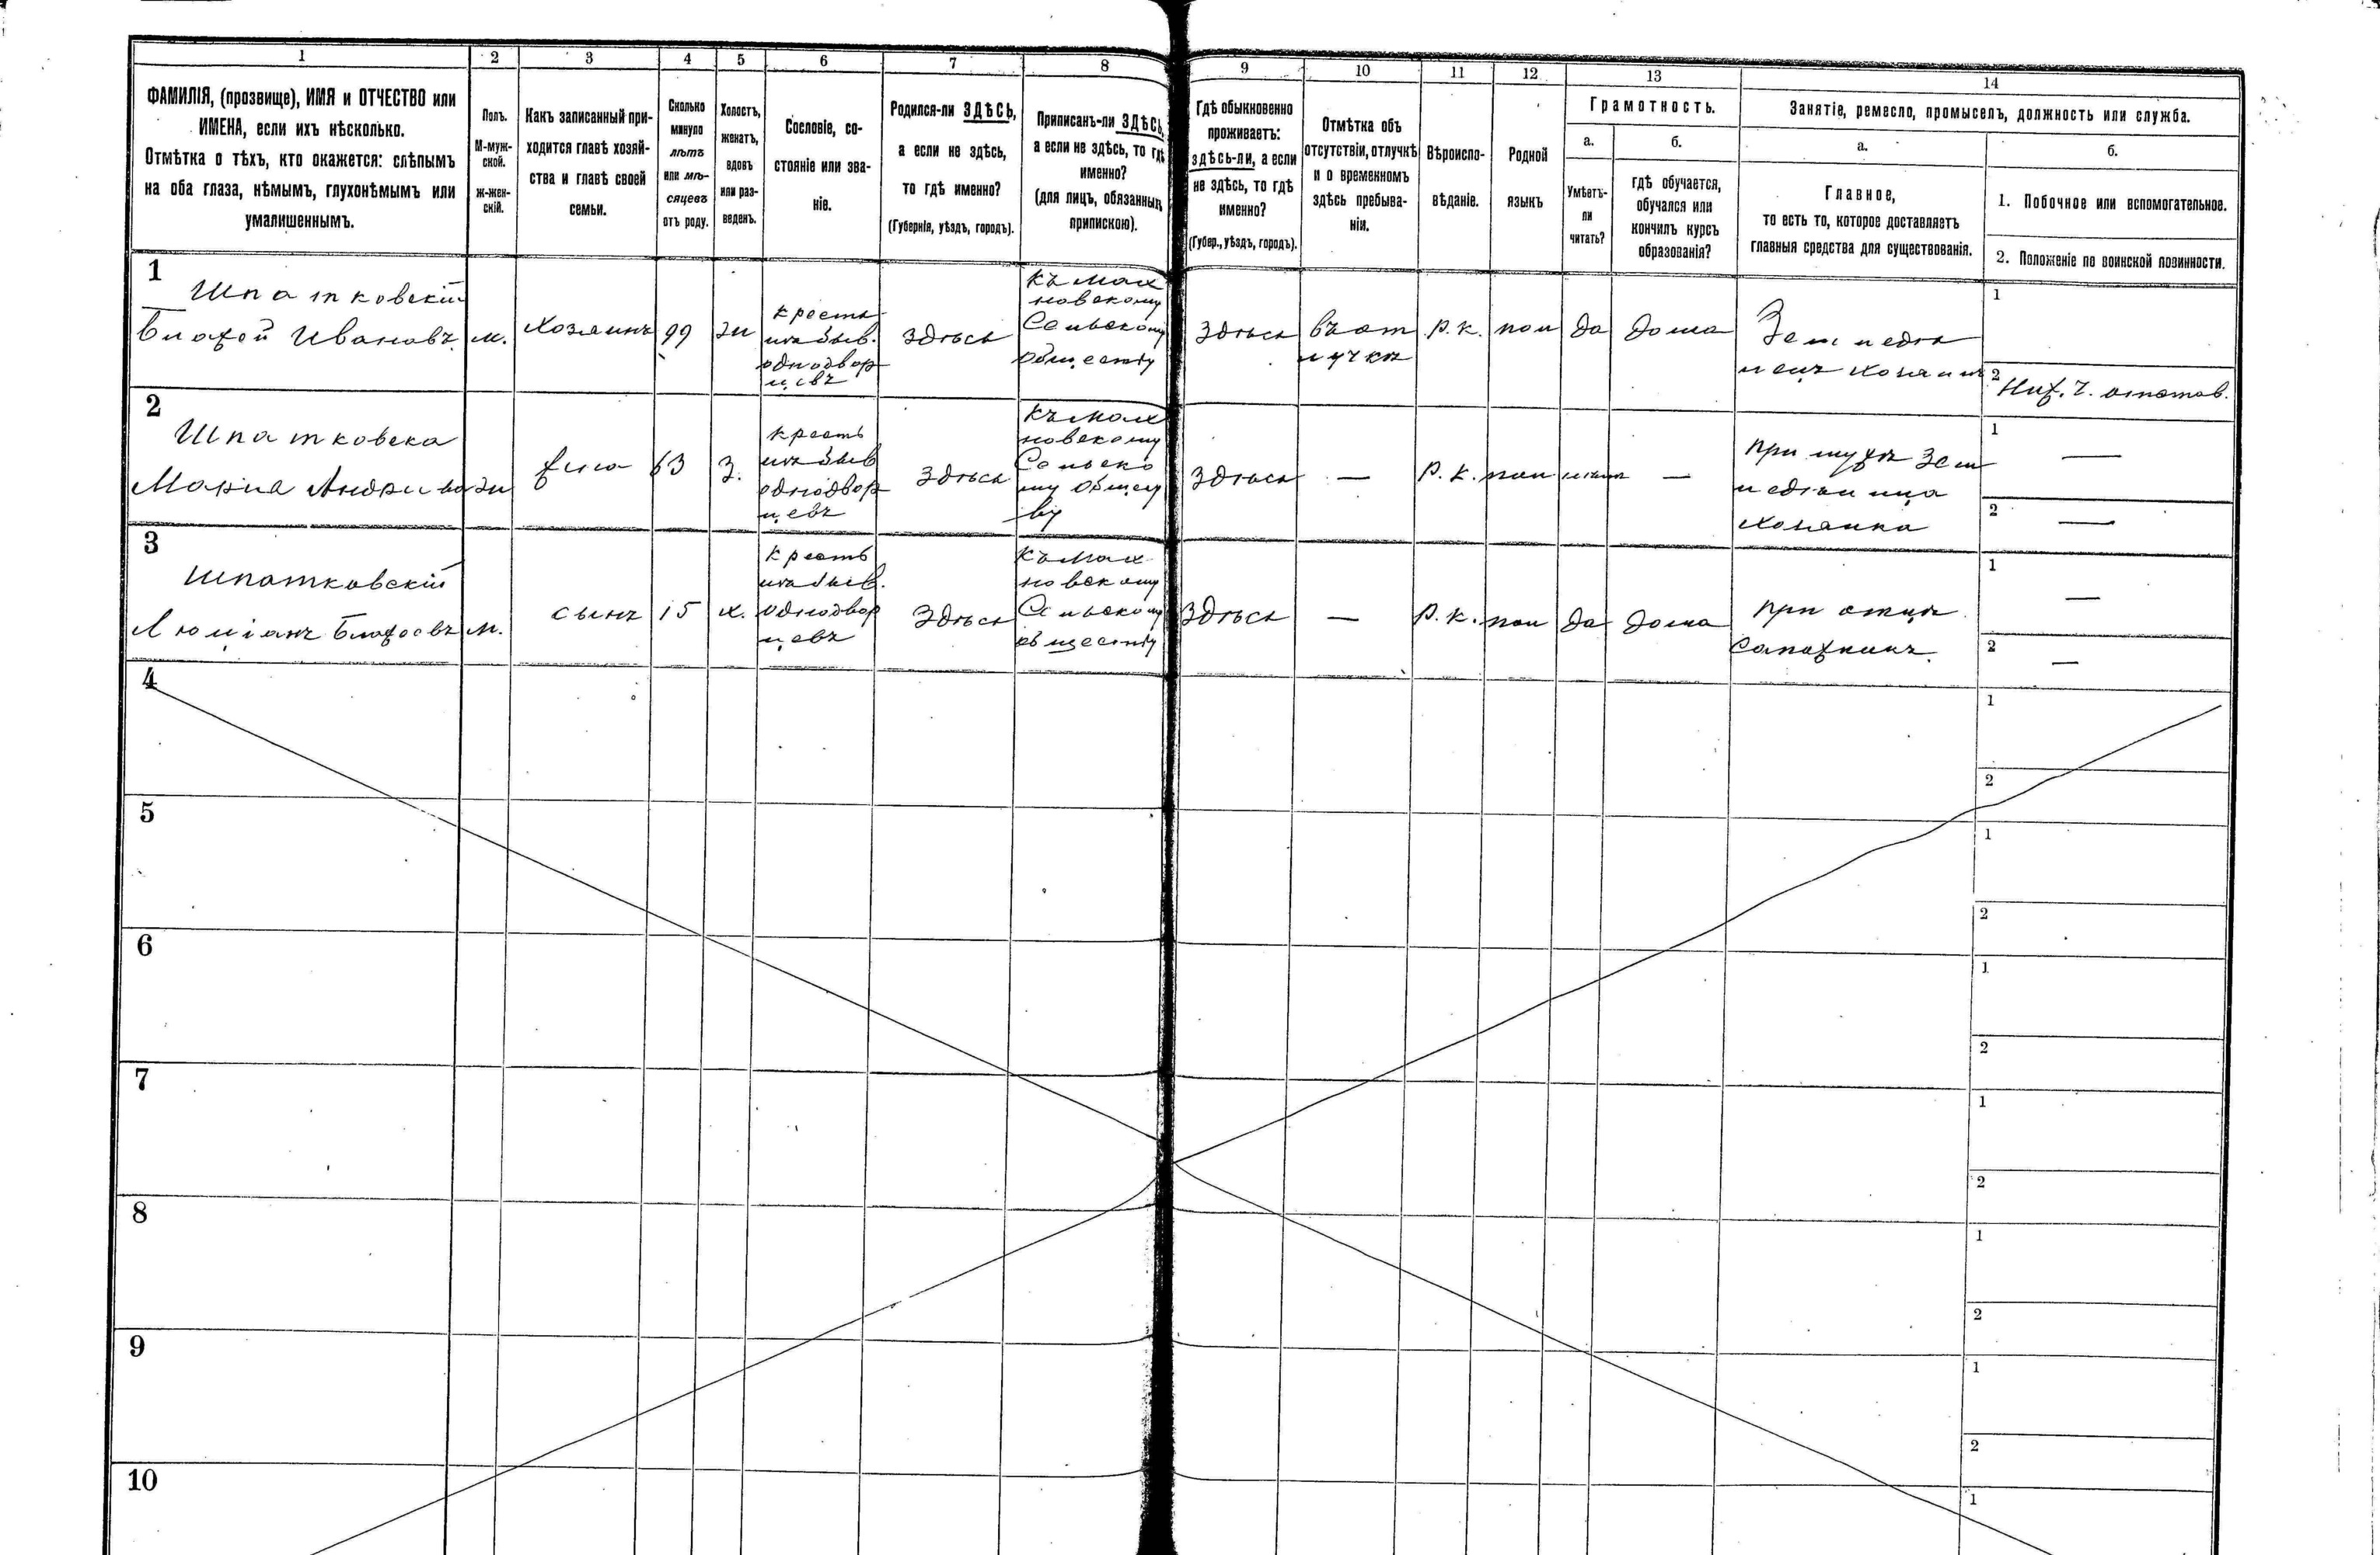 1 2 3 4 5 6 7 8 9 10 11 12 13 14
ФАМИЛІЯ, (прозвище), ИМЯ и ОТЧЕСТВО или
ИМЕНА, если ихъ нѣсколько.
Отмѣтка о тѣхъ, кто окажется: слѣпымъ
на оба глаза, нѣмымъ, глухонѣмымъ или
умалишеннымъ.
Полъ.
М-муж-
ской.
ж-жен-
скій.
Какъ записанный при-
ходится главѣ хозяй-
ства и главѣ своей
семьи.
Сколько
минуло
лѣтъ
или мѣ-
сяцевъ
отъ роду.
Холостъ,
женатъ,
вдовъ
или раз-
веденъ.
Сословіе, со-
стояніе или зва-
ніе.
Родился-ли ЗДѢСЬ,
а если не здѣсь,
то гдѣ именно?
(Губернія, уѣздъ, городъ).
Приписанъ-ли ЗДѢСЬ,
а если не здѣсь, то гдѣ
именно?
(для лицъ, обязанныхъ
припискою).
Гдѣ обыкновенно
проживаетъ:
здѣсь-ли, а если
не здѣсь, то гдѣ
именно?
(Губер., уѣздъ, городъ).
Отмѣтка объ
отсутствіи, отлучкѣ
и о временномъ
здѣсь пребыва-
ніи.
Вѣроиспо-
вѣданіе.
Родной
языкъ
Грамотность.
а.
Умѣетъ-
ли
читать?
б.
гдѣ обучается,
обучался или
кончилъ курсъ
образованія?
Занятіе, ремесло, промыселъ, должность или служба.
а.
Главное,
то есть то, которое доставляетъ
главныя средства для существованія.
б.
1. Побочное или вспомогательное.
2. Положеніе по воинской повинности.
1
Шпатковскій
Блажей Ивановъ
м.
Хозяинъ
99
ж
крестья
изъ быв.
однодвор
цевъ
здѣсь
къ Мах
новскому
Сельскому
обществу
здѣсь
въ от
лучкѣ
р.к.
пол
да
дома
Земледѣ
лецъ хозяинъ
1
2
Ниж. ч. отстав.
2
Шпатковска
Марія
ж
жена
63
З.
кресть
изъ быв
однодвор
цевъ
здѣсь
къ Мах
новскому
Сельско
му общест
ву
здѣсь
—
р.к.
пол
—
при мужѣ зем
ледѣлица
хозяйка
1
—
2
—
3
Шпатковскій
Люціанъ Блажеевъ
м.
сынъ
15
х.
кресть
изъ быв.
однодвор
цевъ
здѣсь
къ Мах
новскому
Сельскому
обществу
здѣсь
—
р.к.
пол
да
дома
при отцѣ
сапожникъ
1
—
2
—
4
1
2
5
1
2
6
1
2
7
1
2
8
1
2
9
1
2
10
1